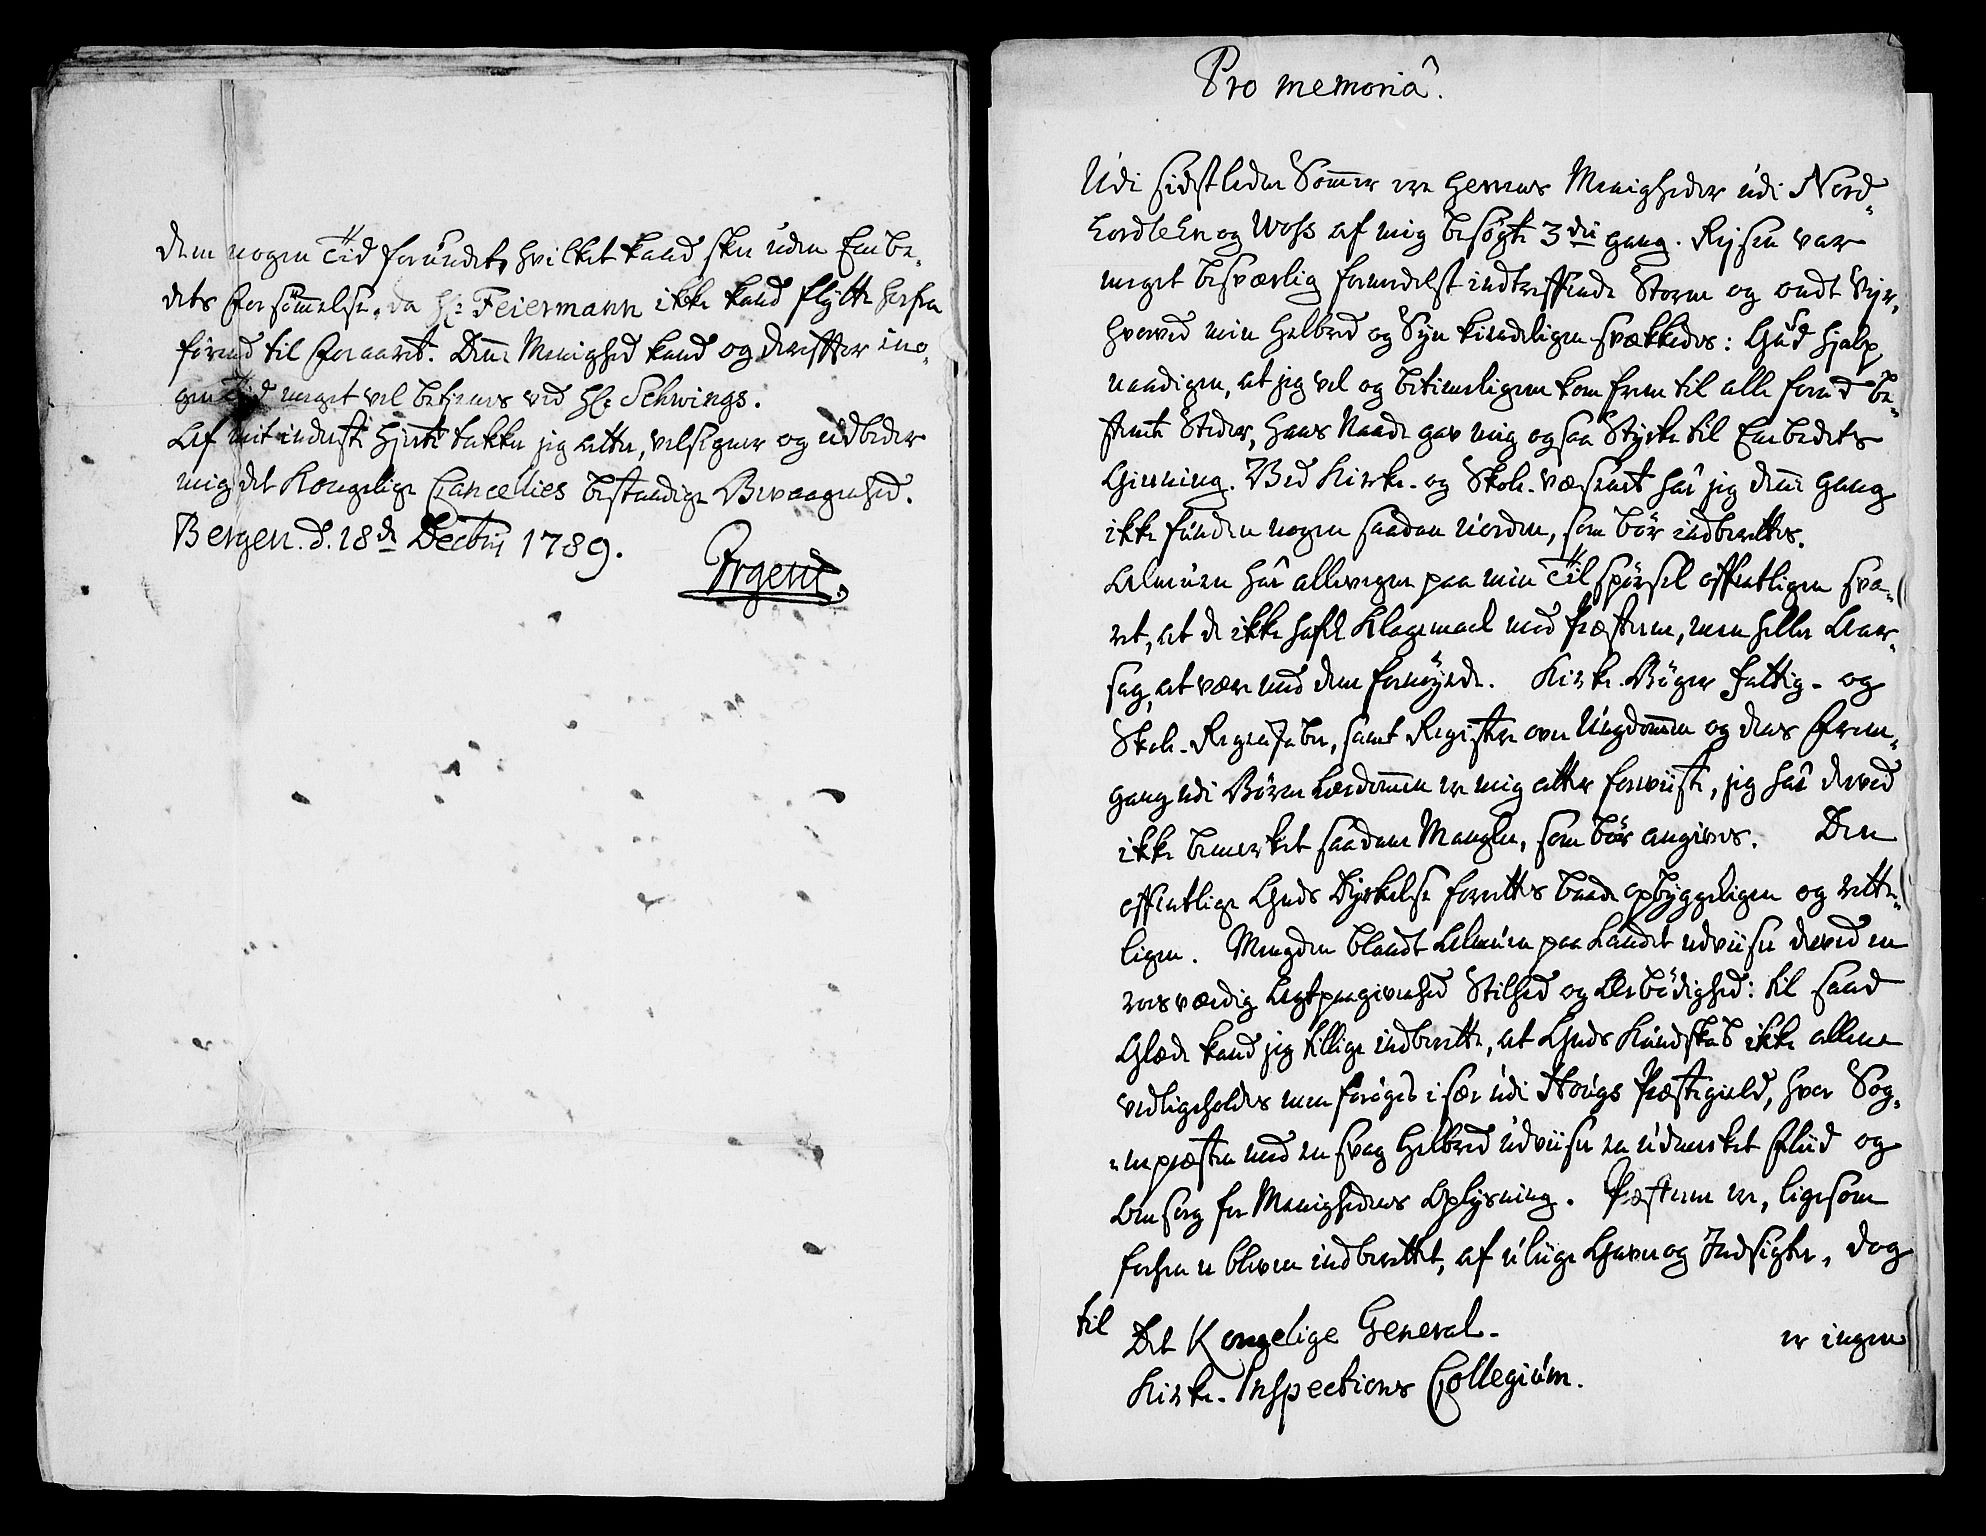 dem nogen Tid forundet, hvilket kand skee uden Embe-
dets Forsømmelse, da Hr: Feiermann ikke kand flytte herfra
førend til Foraaret. Denne Menighed kand og derefter i no-
gen Tid meget vel betienes ved Hr: Schwings.
Af mit inderste Hjerte takker jeg atter, velsigner og udbeder
mig det Kongelige Cancellies bestandige Bevaagenhed.
Bergen. d. 18de Decbris 1789.
Irgens.
Pro memoriâ.
Udi sidstleden Sommer ere Herrens Menigheder udi Nord-
hordlehn og Woss af mig besøgte 3die gang. Rejsen var
meget besværlig formedelst indtreffende Storm og ondt Vejr,
hvorved min Helbred og Syn kiendeligen svækkedes: Gud hjalp
naadigen, at jeg vel og betimeligen kom frem til alle forud be-
stemte Steder, hans Naade gav mig ogsaa Styrke til Embedets
Gierning. Ved Kirke- og Skole-væsenet har jeg denne gang
ikke funden nogen saadan Uorden, som bør indberettes.
Almuen har allevegne paa min Tilspørsel offentligen sva-
ret, at de ikke hafde Klagemaal mod Præsterne, men heller Aar-
sag, at være med dem fornøyede. Kirke-Bøger Fattig- og
Skole-Regenskaber, samt Registre over Ungdommen og dens Frem-
gang udi Børne Lærdommen er mig atter foreviiste, jeg har derved
ikke bemerket saadanne Mangler, som bør angives. Den
offentlige Guds Dyrkelse forrettes baade opbyggeligen og rette-
ligen. Mengden blandt Almuen paa Landet udviiser derved en
roesværdig Agtpaagivenhed Stilhed og Ærbødighed: til sand
Glæde kand jeg tillige indberette, at Guds Kundskab ikke allene
vedligeholdes men forøges i sær udi Hougs Præstegield, hvor Sog-
nepræsten med en svag Helbred udviiser en udmerket Fliid og
Omsorg for Menighedens Oplysning. Præsterne ere, ligesom
forhen er bleven indberettet, af ulige Gaver og Indsigter, dog
til
Det Kongelige General-
er ingen
Kirke-Inspections Collegium.